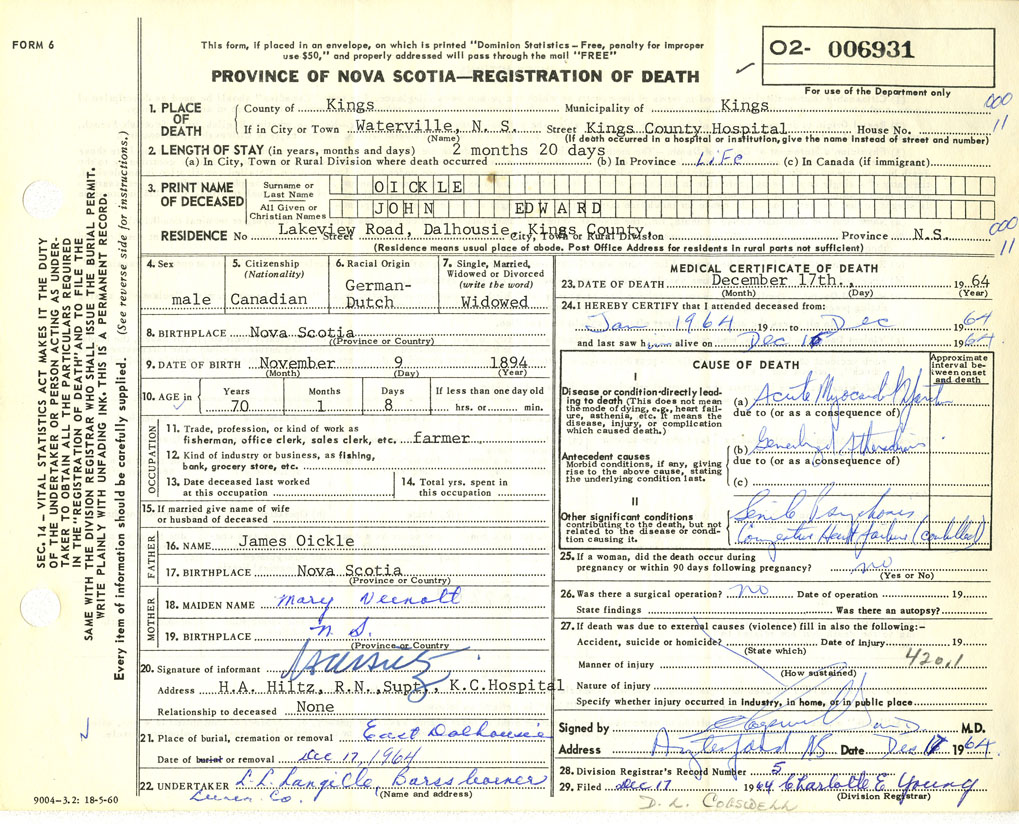 FORM 6
This form, if placed in an envelope, on which is printed "Dominion Statistics – Free, penalty for improper
use $50," and properly addressed will pass through the mail "FREE"
PROVINCE OF NOVA SCOTIA—REGISTRATION OF DEATH
O2- 006931
For use of the Department only
SEC. 14 – VITAL STATISTICS ACT MAKES IT THE DUTY
OF THE UNDERTAKER OR PERSON ACTING AS UNDER-
TAKER TO OBTAIN ALL THE PARTICULARS REQUIRED
IN THE "REGISTRATION OF DEATH" AND TO FILE THE
SAME WITH THE DIVISION REGISTRAR WHO SHALL ISSUE THE BURIAL PERMIT.
WRITE PLAINLY WITH UNFADING INK. THIS IS A PERMANENT RECORD.
Every item of information should be carefully supplied. (See reverse side for instructions.)
1. PLACE OF DEATH
County of Kings Municipality of Kings
000
11
If in City or Town Waterville, N. S. Street Kings County Hospital House No.
(Name) (If death occurred in a hospital or institution, give the name instead of street and number)
2. LENGTH OF STAY (in years, months and days) 2 months 20 days
(a) In City, Town or Rural Division where death occurred (b) In Province Life (c) In Canada (if immigrant)
3. PRINT NAME OF DECEASED
Surname or Last Name OICKLE
All Given or Christian Names JOHN EDWARD
RESIDENCE No Street Lakeview Road, Dalhousie, Kings County, City, Town or Rural Division Province N.S.
000
11
(Residence means usual place of abode. Post Office Address for residents in rural parts not sufficient)
4. Sex male
5. Citizenship (Nationality) Canadian
6. Racial Origin German-Dutch
7. Single, Married, Widowed or Divorced (write the word) Widowed
8. BIRTHPLACE Nova Scotia
(Province or County)
9. DATE OF BIRTH November 9 1894
(Month) (Day) (Year)
10. AGE in Years 70 Months 1 Days 8 If less than one day old hrs. or min.
OCCUPATION
11. Trade, profession, or kind of work as
fisherman, office clerk, sales clerk, etc. farmer
12. Kind of industry or business, as fishing,
bank, grocery store, etc.
13. Date deceased last worked
at this occupation
14. Total yrs. spent in
this occupation
15. If married – give name of wife
or husband of deceased
FATHER
16. NAME James Oickle
17. BIRTHPLACE Nova Scotia
(Province or Country)
MOTHER
18. MAIDEN NAME Mary Veinott
19. BIRTHPLACE N S.
(Province or Country
20. Signature of informant
Address H.A. Hiltz, R.N.,Supt., K.C.Hospital
Relationship to deceased None
21. Place of burial, cremation or removal East Dalhousie
Date of burial or removal Dec 17, 1964
22. UNDERTAKER L. L. Langille, Barss Corner
(Name and address)
Lunen. Co.
9004–3.2: 18-5-60
MEDICAL CERTIFICATE OF DEATH
23. DATE OF DEATH December 17th., 1964
(Month) (Day) (Year)
24. I HEREBY CERTIFY that I attended deceased from:
Jan 1964 19 to Dec 1964
and last saw him alive on Dec 1964
CAUSE OF DEATH
Approximate interval between onset and death
I
Disease or condition directly lead-
ing to death (This does not mean
the mode of dying, e.g., heart fail-
ure, asthenia, etc. It means the
disease, injury, or complication
which caused death.)
(a) Acute Myocard Infarct
due to (or as a consequence of)
Antecedent causes
Morbid conditions, if any, giving
rise to the above cause, stating
the underlying condition last.
(b)
due to (or as a consequence of)
(c)
II
Other significant conditions
contributing to the death, but not
related to the disease or condi-
tion causing it.
Senile Psychosis
Congestive Heart failure (controlled)
25. If a woman, did the death occur during
pregnancy or within 90 days following pregnancy? no
(Yes or No)
26. Was there a surgical operation? no Date of operation 19
State findings Was there an autopsy?
27. If death was due to external causes (violence) fill in also the following:–
Accident, suicide or homicide? Date of injury 19
(State which)
Manner of injury 420.1
(How sustained)
Nature of injury
Specify whether injury occurred in industry, in home, or in public place
Signed by M.D.
Address NS Date Dec 17 1964
28. Division Registrar's Record Number 5
29. Filed Dec 17 1964 Charlotte E Young
(Division Registrar)
D. L. COGSWELL